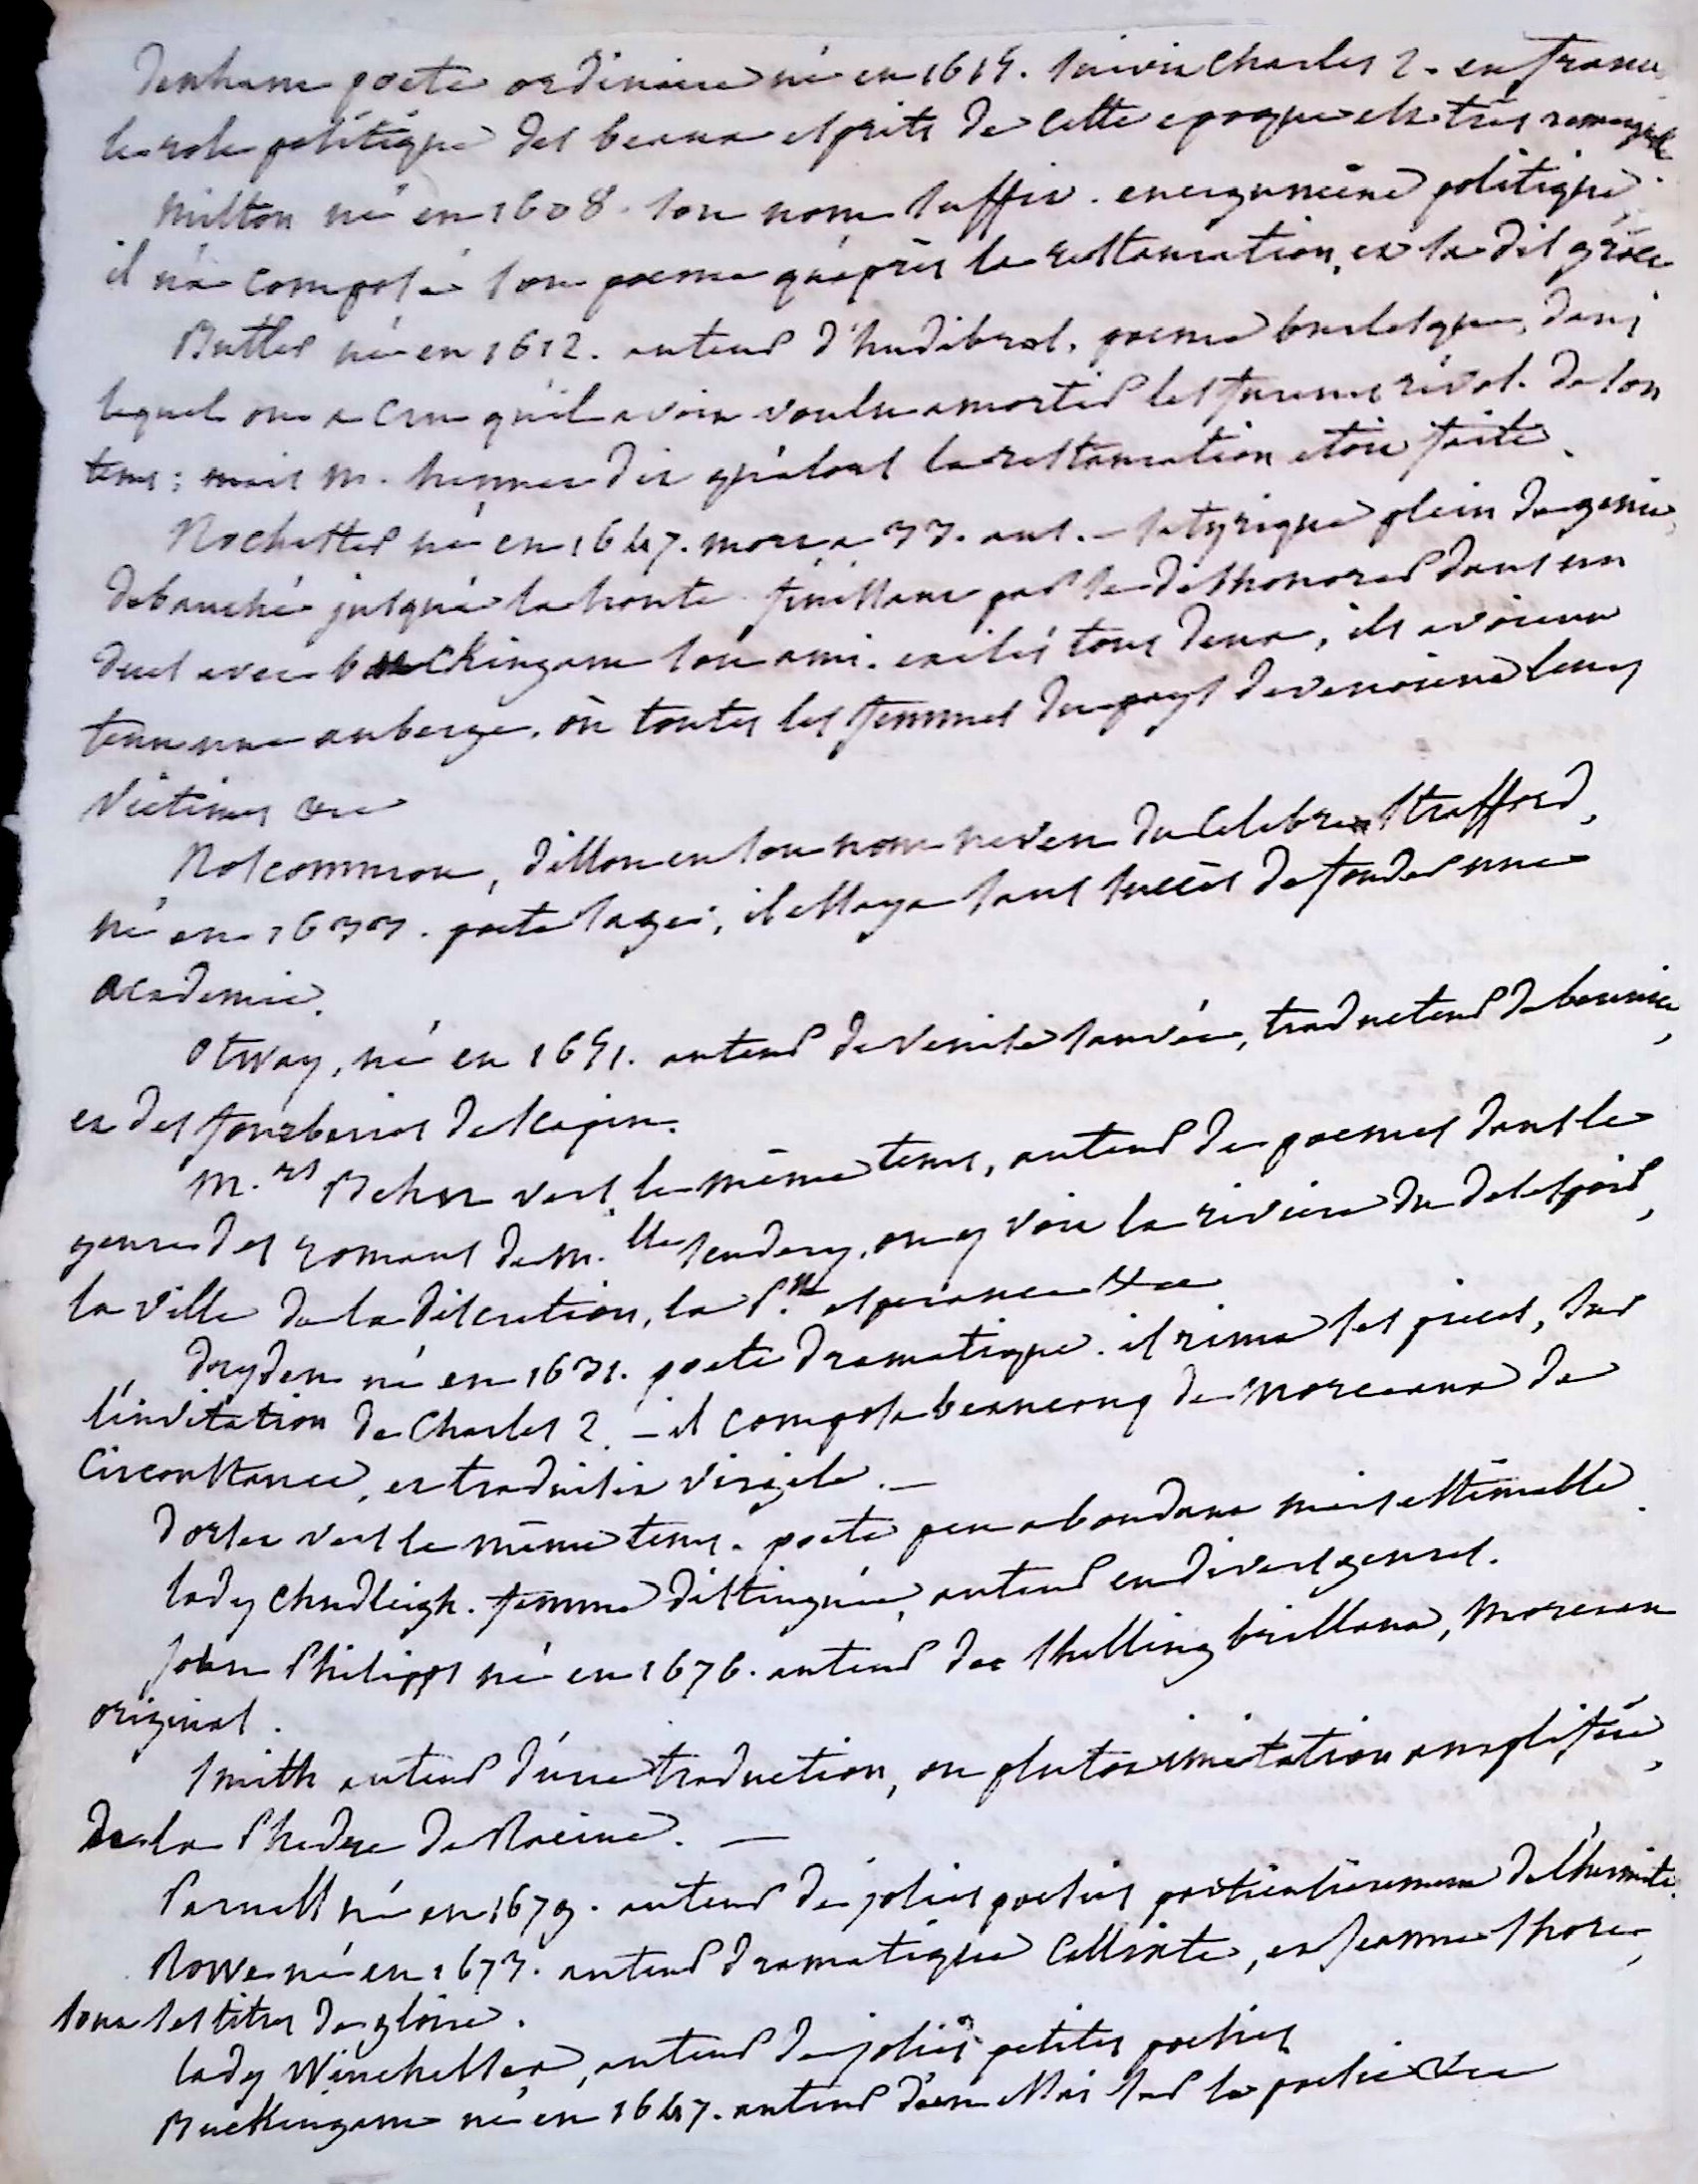 Denham poete ordinaire né en 1615. suivit Charles 2. en france
le role politique des beaux esprits de cette epoque est très remarquable
Milton né en 1608. son nom suffit. energumène politique,
il n'a composé son poeme qu'après la restauration, et sa disgrace
Butler né en 1612. auteur d'hudibras, poeme burlesque, dans
lequel on a cru qu'il avoit voulu amortir les fureurs rivol. de son
tems; mais M. hennet dit qu'alors la restauration etoit faite.
Rochester né en 1647. mort a 33. ans. — satyrique plein de genie,
debauché jusqu'a la honte finissant par se deshonorer dans un
duel avec buckingam son ami. exilés tous deux, ils avoient
tenu une auberge, où toutes les femmes du pays devenoient leurs
victimes &c
Roscommon, dillon en son nom neveu du celebre Strafford,
né en 1633. poete sage; il essaya sans succès de fonder une
academie.
Otway, né en 1651. auteur de Venise sauvée, traducteur de berenice,
et des fourberies de scapin.
M.rs Behn vers le même tems, auteur de poemes dans le
genre des romans de M.lle scudery, on y voit la riviere du desespoir,
la ville de la discretion, la P.sse esperance &c
Dryden né en 1631. poete dramatique. il rima ses pieces, sur
l'invitation de Charles 2. — il composa beaucoup de morceaux de
circonstance, et traduisit virgile. —
Dorset vers le même tems. poete peu abondant mais estimable.
lady Chudleigh. femme distinguée, auteur en divers genres.
John Philipps né en 1676. auteur du shelling brillant, morceau
original.
Smith auteur d'une traduction, ou plutot imitation amplifiée,
de la Phedre de Racine. —
Parnell né en 1679. auteur de jolies poesies particulierement de l'hermite.
Rowe né en 1673. auteur dramatique Callixte, et Jeanne Shore,
sont ses titres de gloire.
lady Winchelsea, auteur de jolies petites poesies
Buckingam né en 1647. auteur d'un essai sur la poesie &c